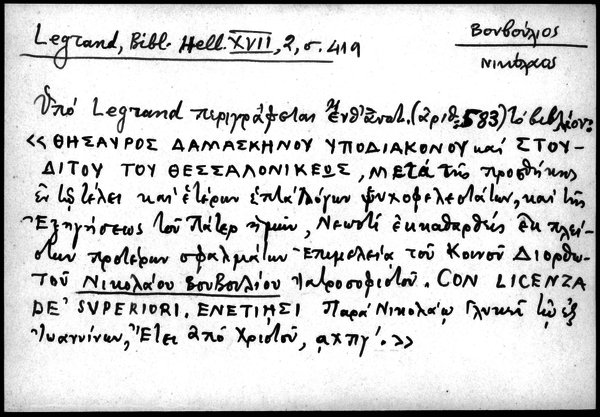 Legrand, Bibl. Hell. XVII, 2, σ. 419
Βουβούλιος
Νικόλαος
Ὑπό Legrand περιγράφεται ἐνθ' ἀνωτ. (ἀριθ. 583) τό βιβλίον:
«ΘΗΣΑΥΡΟΣ ΔΑΜΑΣΚΗΝΟΥ ΥΠΟΔΙΑΚΟΝΟΥ καί ΣΤΟΥ-
ΔΙΤΟΥ ΤΟΥ ΘΕΣΣΑΛΟΝΙΚΕΩΣ, μετά τῆς προσθήκης
ἐν τῷ τέλει καί ἑτέρων ἑπτά Λόγων ψυχοφελεστάτων, καί τῆς
Ἐξηγήσεως τοῦ Πάτερ ἡμῶν, Νεωστί ἐκκαθαρθείς ἐκ πλεί-
στων προτέρων σφαλμάτων Ἐπιμελεία τοῦ Κοινοῦ Διορθω-
τοῦ Νικολάου Βουβουλίου Ἰατροσοφιστοῦ. CON LICENZA
DE' SVPERIORI. ΕΝΕΤΙΗΣΙ Παρά Νικολάῳ Γλυκεῖ τῷ ἐξ
Ἰωαννίνων, Ἔτει ἀπό Χριστοῦ, αχπγ'.»